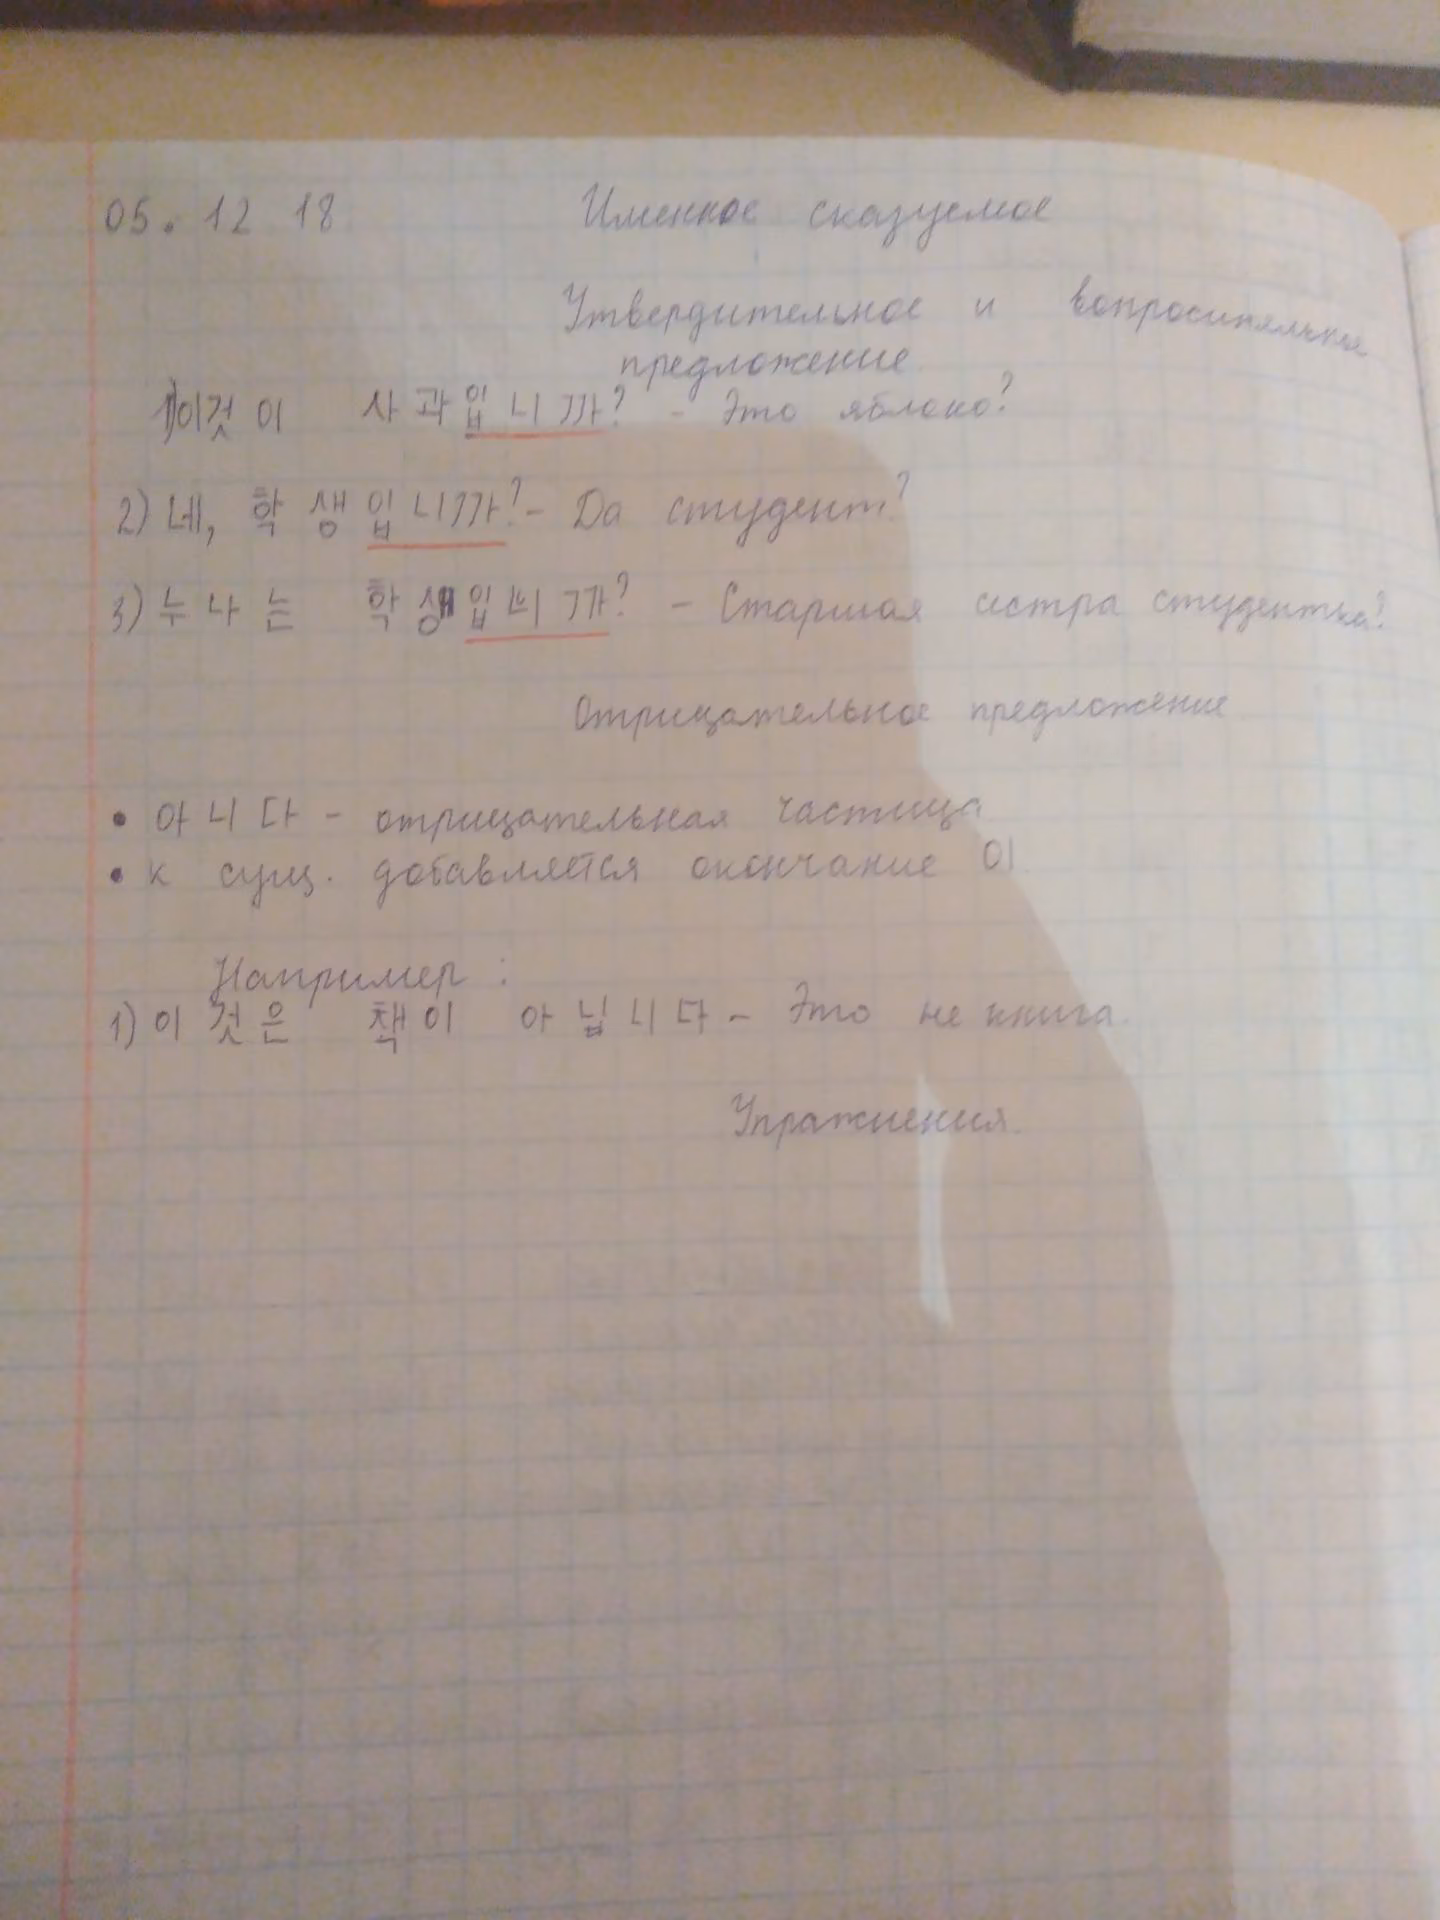 05. 12 18 Именное сказуемое
Утвердительное и
предложение
1) 이것이 사과입니까? - Это яблоко?
2) 네, 학생입니까? - Да студент?
3) 누나는 학생입니까? - Старшая сестра студентка?
Отрицательное предложение
• 아니다 - отрицательная частица
• к сущ. добавляется окончание 이
Например:
1) 이것은 책이 아닙니다 - Это не книга.
Упражнения.